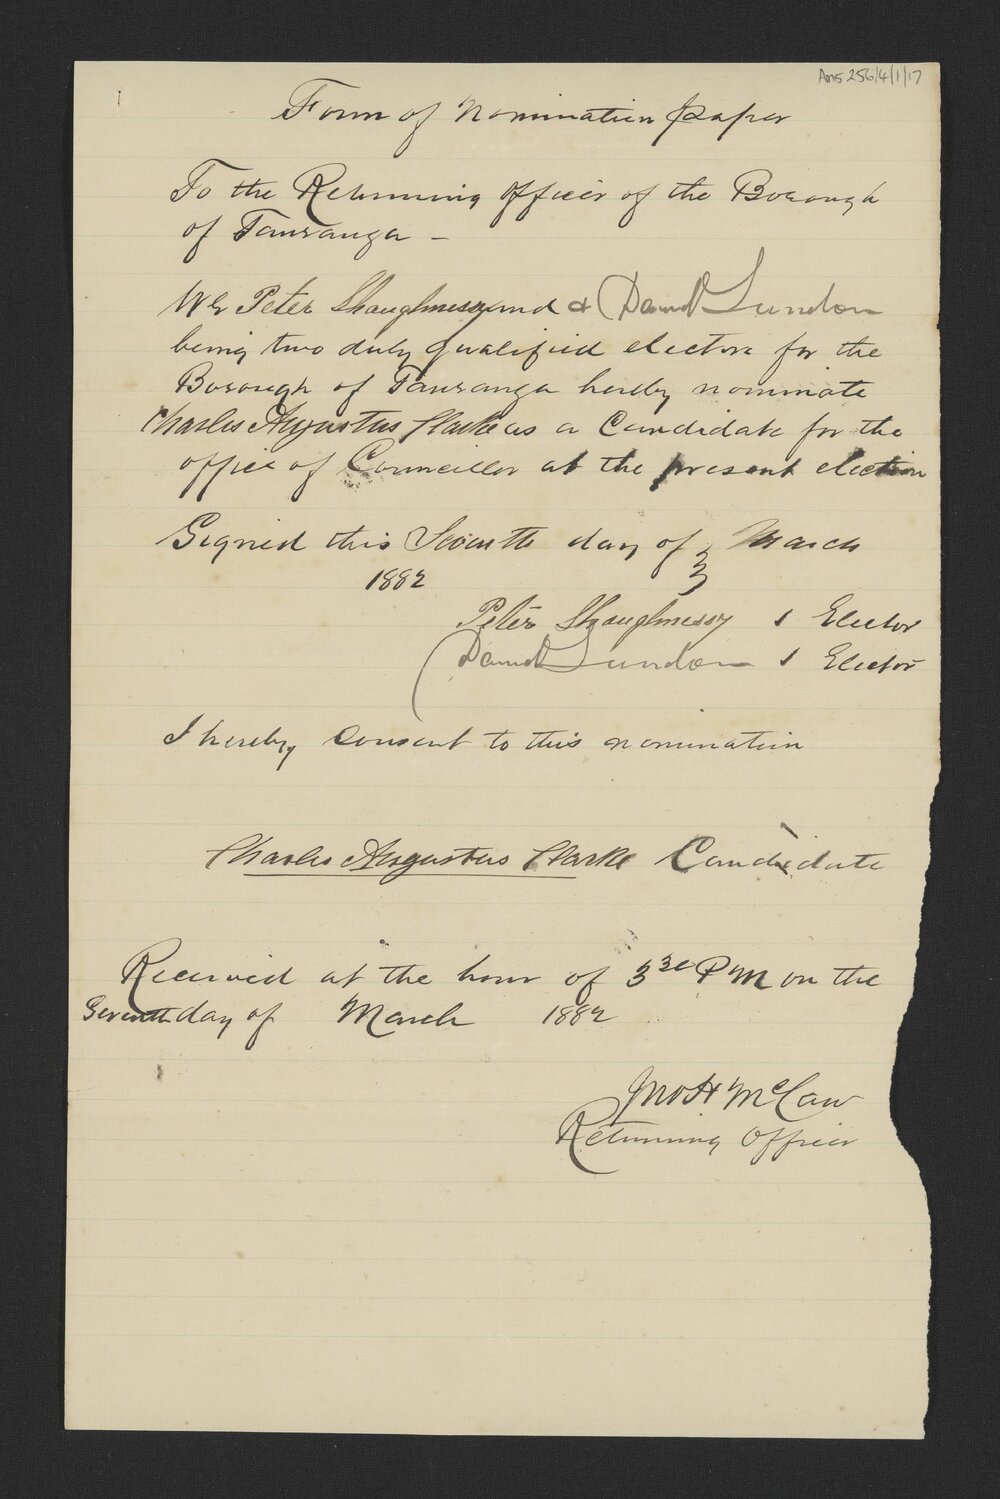 Ams 256/4/1/17
Form of Nomination Paper
To the Returning Officer of the Borough
of Tauranga –
We Peter Shaughnessy and & David Lundon
being two duly qualified electors for the
Borough of Tauranga hereby nominate
Charles Augustus Clarke as a Candidate for the
office of Councillor at the present election
Signed this Seventh day of March
1882
Peter Shaughnessy 1 Elector
David Lundon 1 Elector
I hereby consent to this nomination
Charles Augustus Clarke Candidate
Received at the hour of 3 30 PM on the
Seventh day of March 1882
Jno H McCaw
Returning Officer